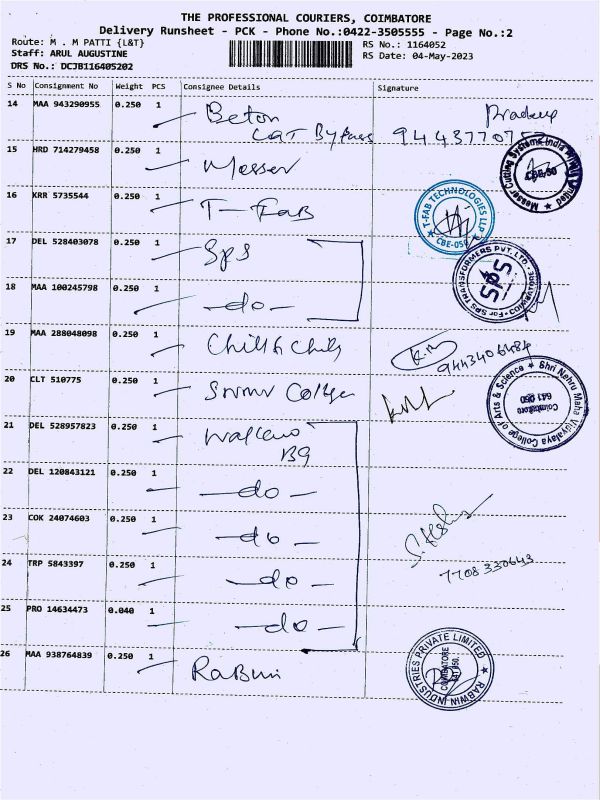 THE PROFESSIONAL COURIERS, COIMBATORE
Delivery Runsheet - PCK - Phone No.:0422-3505555 - Page No.:2
Route: M . M PATTI {L&T}
RS No.: 1164052
Staff: ARUL AUGUSTINE
RS Date: 04-May-2023
DRS No.: DCJB116405202
S No Consignment No Weight PCS Consignee Details Signature
14 MAA 943290955 0.250 1 Beton Pradeep
L&T Bypass
15 HRD 714279458 0.250 1 Messer
Messer Cutting Systems India Private Limited
CBE-50
16 KRR 5735544 0.250 1 T-FAB
T-FAB TECHNOLOGIES LLP
CBE-059
17 DEL 528403078 0.250 1 SPS
For SPS TRANSFORMERS PVT. LTD.
SPS
18 MAA 100245798 0.250 1 -do-
19 MAA 288048098 0.250 1 Chill & Chill
9443406484
20 CLT 510775 0.250 1 SNMV College
Shri Nehru Maha Vidyalaya College of Arts & Science
Coimbatore
641 050
21 DEL 528957823 0.250 1
22 DEL 120843121 0.250 1 -do-
23 COK 24074603 0.250 1 -do-
24 TRP 5843397 0.250 1 -do-
7708330643
25 PRO 14634473 0.040 1 -do-
26 MAA 938764839 0.250 1 RABWin
RABWIN INDUSTRIES PRIVATE LIMITED
COIMBATORE
641 050.